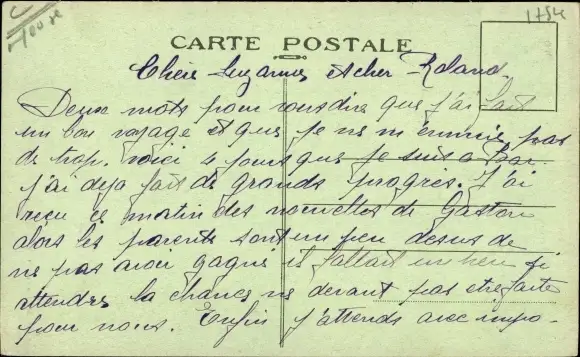 1754
CARTE POSTALE
Chère Suzanne et cher Roland.
Deux mots pour vous dire que j'ai fait
un bon voyage et que je ne m'ennuie pas
de trop. Voici 4 jours que je suis a
j'ai deja fait de grands progrès. J'ai
reçu ce matin des nouvelles de Gaston
alors les parents sont un peu deçus de
ne pas avoir gagné il fallait un peu si
attendre la chance ne devant pas etre faite
pour nous. Enfin j'attends avec impa-